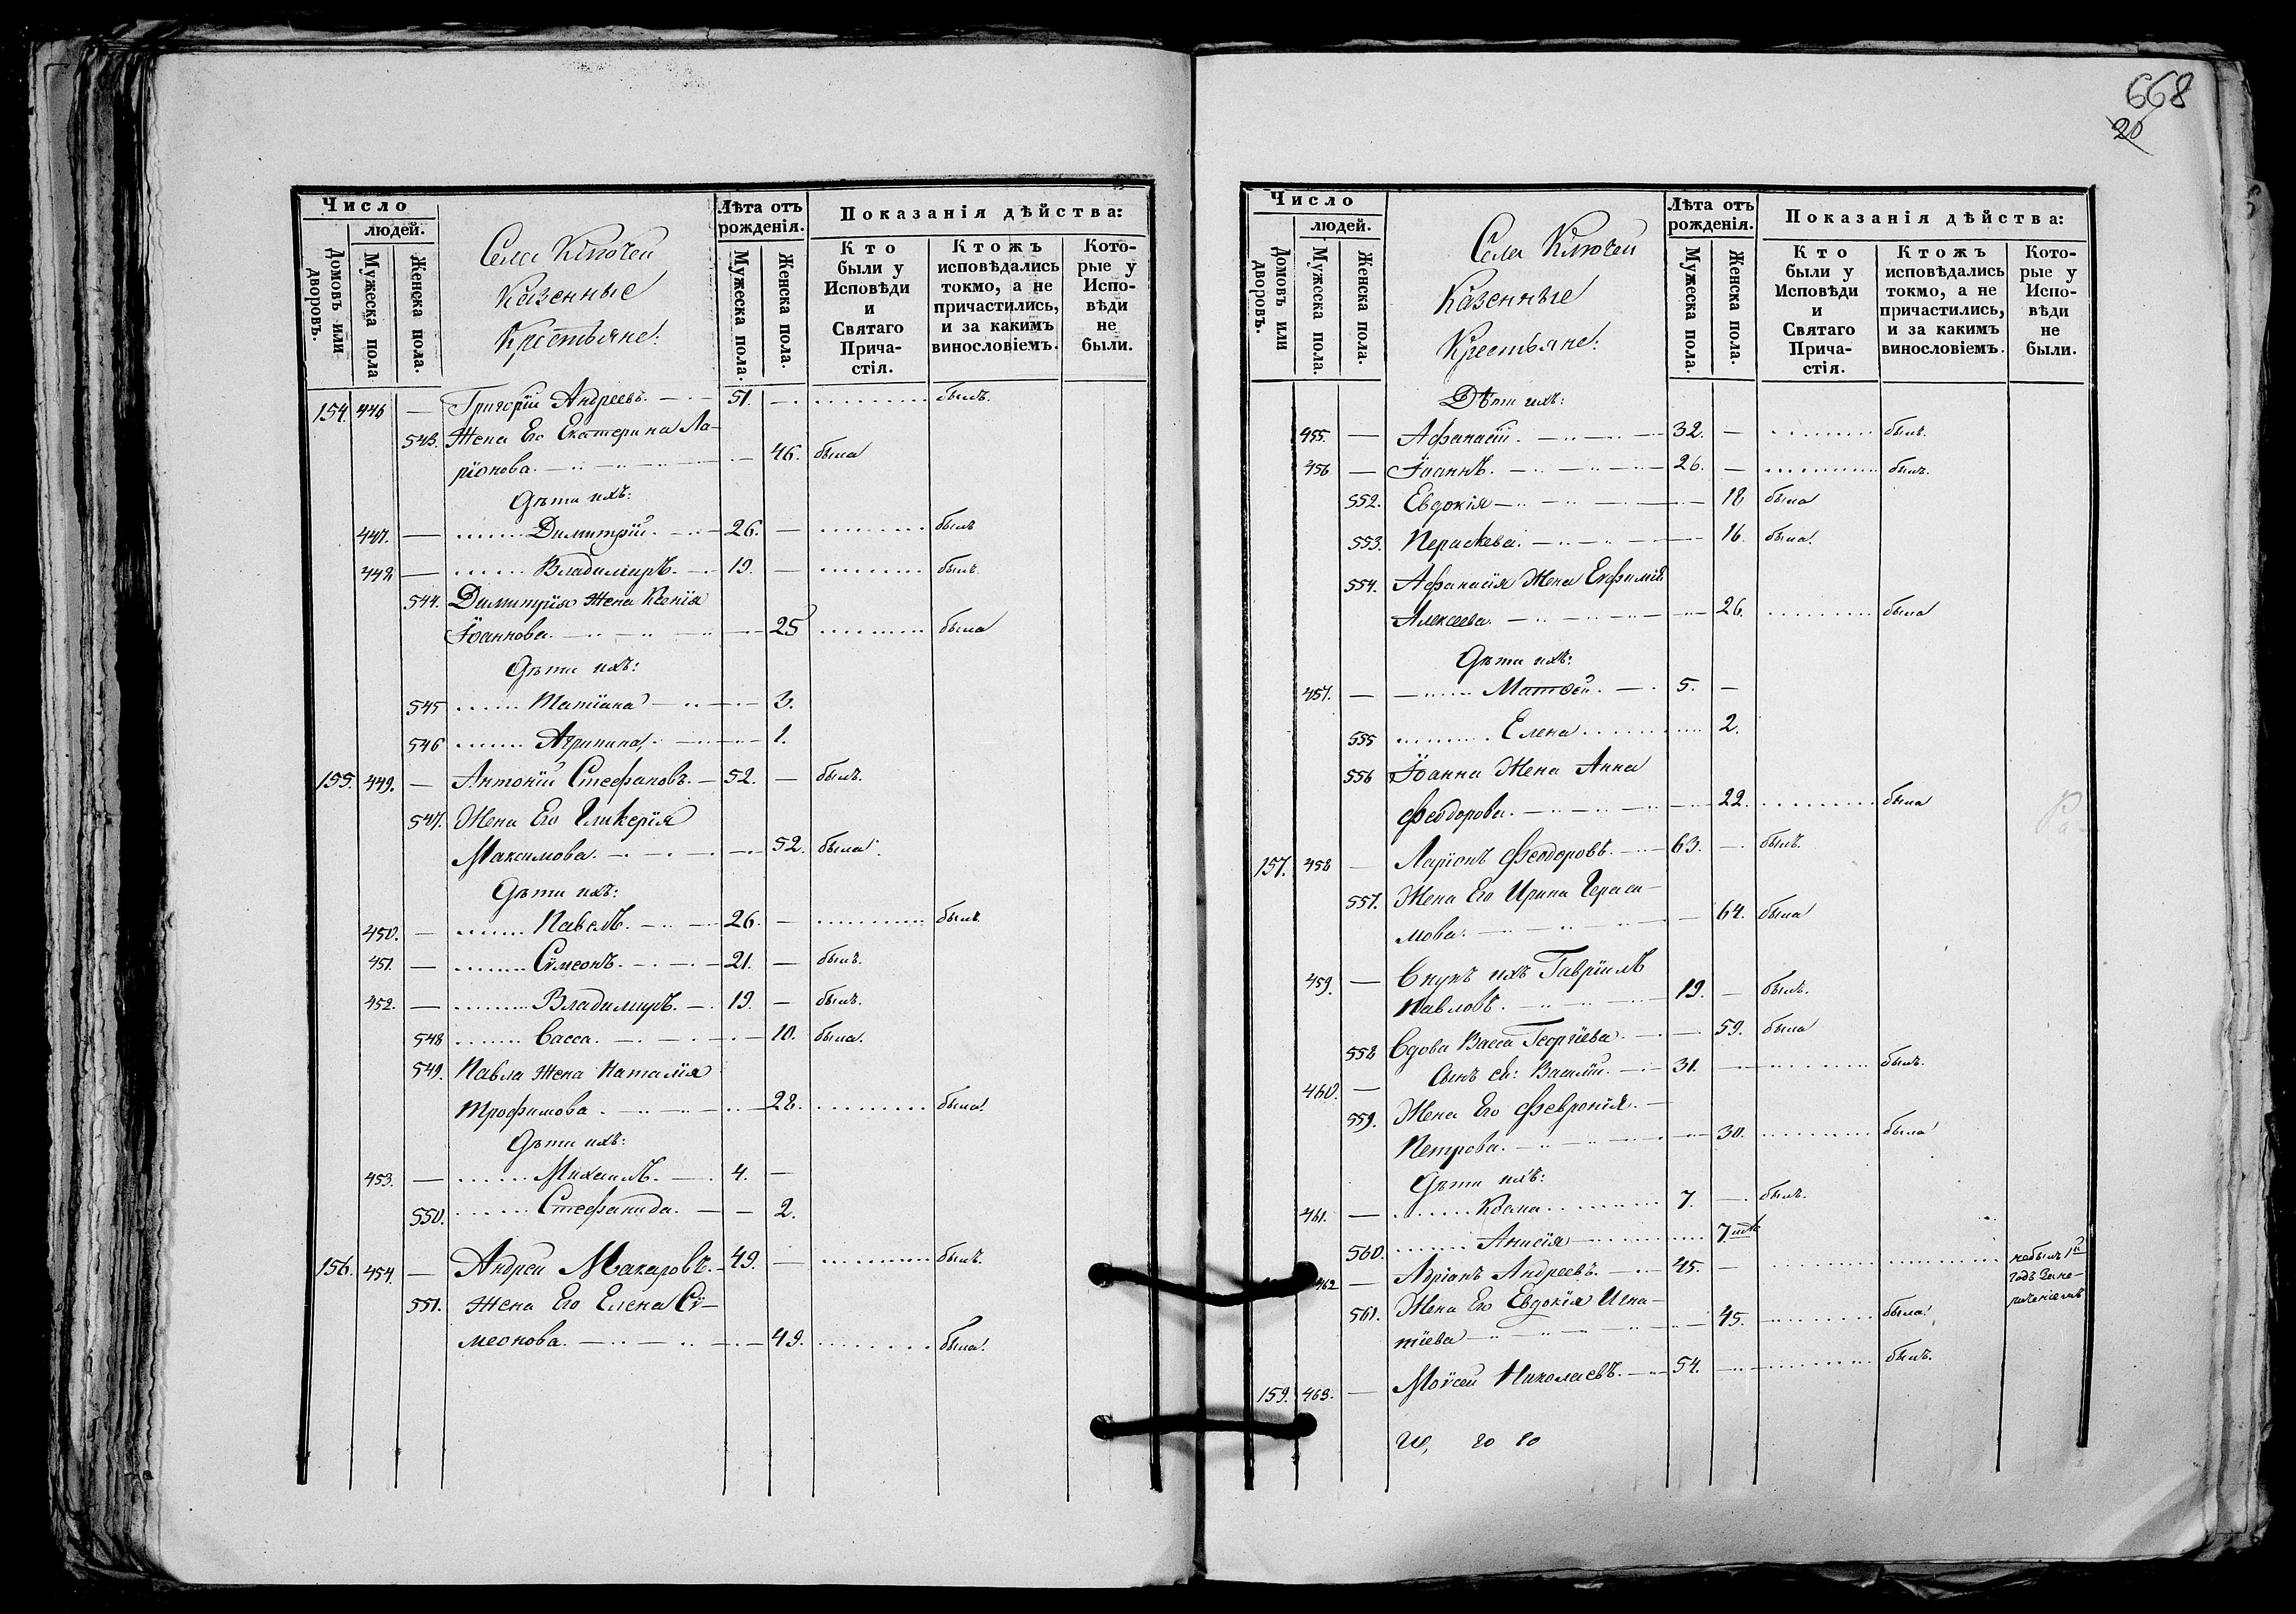 668
20
Число
людей.
Домовъ или дворовъ.
Мужеска пола
Женска пола.
Села Ключей
Казенные
Крестьяне:
Лѣта отъ рожденія.
Мужеска пола.
Женска пола.
Показанія дѣйства:
Кто были у Исповѣди и Святаго Причастія.
Ктожъ исповѣдались токмо, а не причастились, и за какимъ винословіемъ.
Которые у Исповѣди не были.
154. 446 — Григорій Андреевъ. 51. — былъ.
543. Жена Его Екатерина Ла-
ріонова. 46. была
Дѣти ихъ:
447. — Димитрій. 26. — былъ
448 — Владиміръ. 19. — былъ.
544. Димитрія Жена Ксенія
Іоаннова. 25 была
Дѣти ихъ:
545 Татіана 3.
546 Агрипина, 1.
155. 449. — Антоній Стефановъ. 52. — былъ.
547. Жена Его Гликерія
Максимова. 52. была.
Дѣти ихъ:
450. — Павелъ. 26. — былъ.
451. — Сѵмеонъ. 21. — былъ.
452. — Владиміръ. 19. — былъ.
548 Васса. 10. была.
549. Павла Жена Наталія
Трофимова. 28. была.
Дѣти ихъ:
453. — Михаилъ. 4. —
550. Стефанида. — 2.
156. 454. — Андрей Макаровъ. 49. — былъ.
551. Жена Его Елена Сѵ-
меонова. 49. была.
Число
людей.
Домовъ или дворовъ.
Мужеска пола.
Женска пола.
Села Ключей
Казенные
Крестьяне:
Лѣта отъ рожденія.
Мужеска пола.
Женска пола.
Показанія дѣйства:
Кто были у Исповѣди и Святаго Причастія.
Ктожъ исповѣдались токмо, а не причастились, и за какимъ винословіемъ.
Которые у Исповѣди не были.
Дѣти ихъ:
455. — Афанасій. 32. — былъ.
456 — Іоаннъ. 26. — былъ.
552. Евдокія 18 была
553. Параскева. 16. была.
554. Афанасія Жена Евфимія
Алексеева. 26. была
Дѣти ихъ:
457. — Матѳей. 5. —
555 Елена 2.
556 Іоанна Жена Анна
Феодорова. 22. была
157. 458 — Ларіонъ Феодоровъ. 63. — былъ.
557. Жена Его Ирина Гераси-
мова. 64. была
459. — Внукъ ихъ Гавріилъ
Павловъ. 19. — былъ.
558 Вдова Васса Георгіева. 59. была
460. — Сынъ ея: Василій. 31. — былъ.
559. Жена Его Февронія.
Петрова. 30. была
Дѣти ихъ:
461. — Козма 7. — былъ.
560. Анисія 7
462 — Адріанъ Андреевъ. 45. — небылъ 1й
годъ
561. Жена Его Евдокія Игна-
тіева 45. была.
159. 463. — Моѵсей Николаевъ. 54. — былъ.